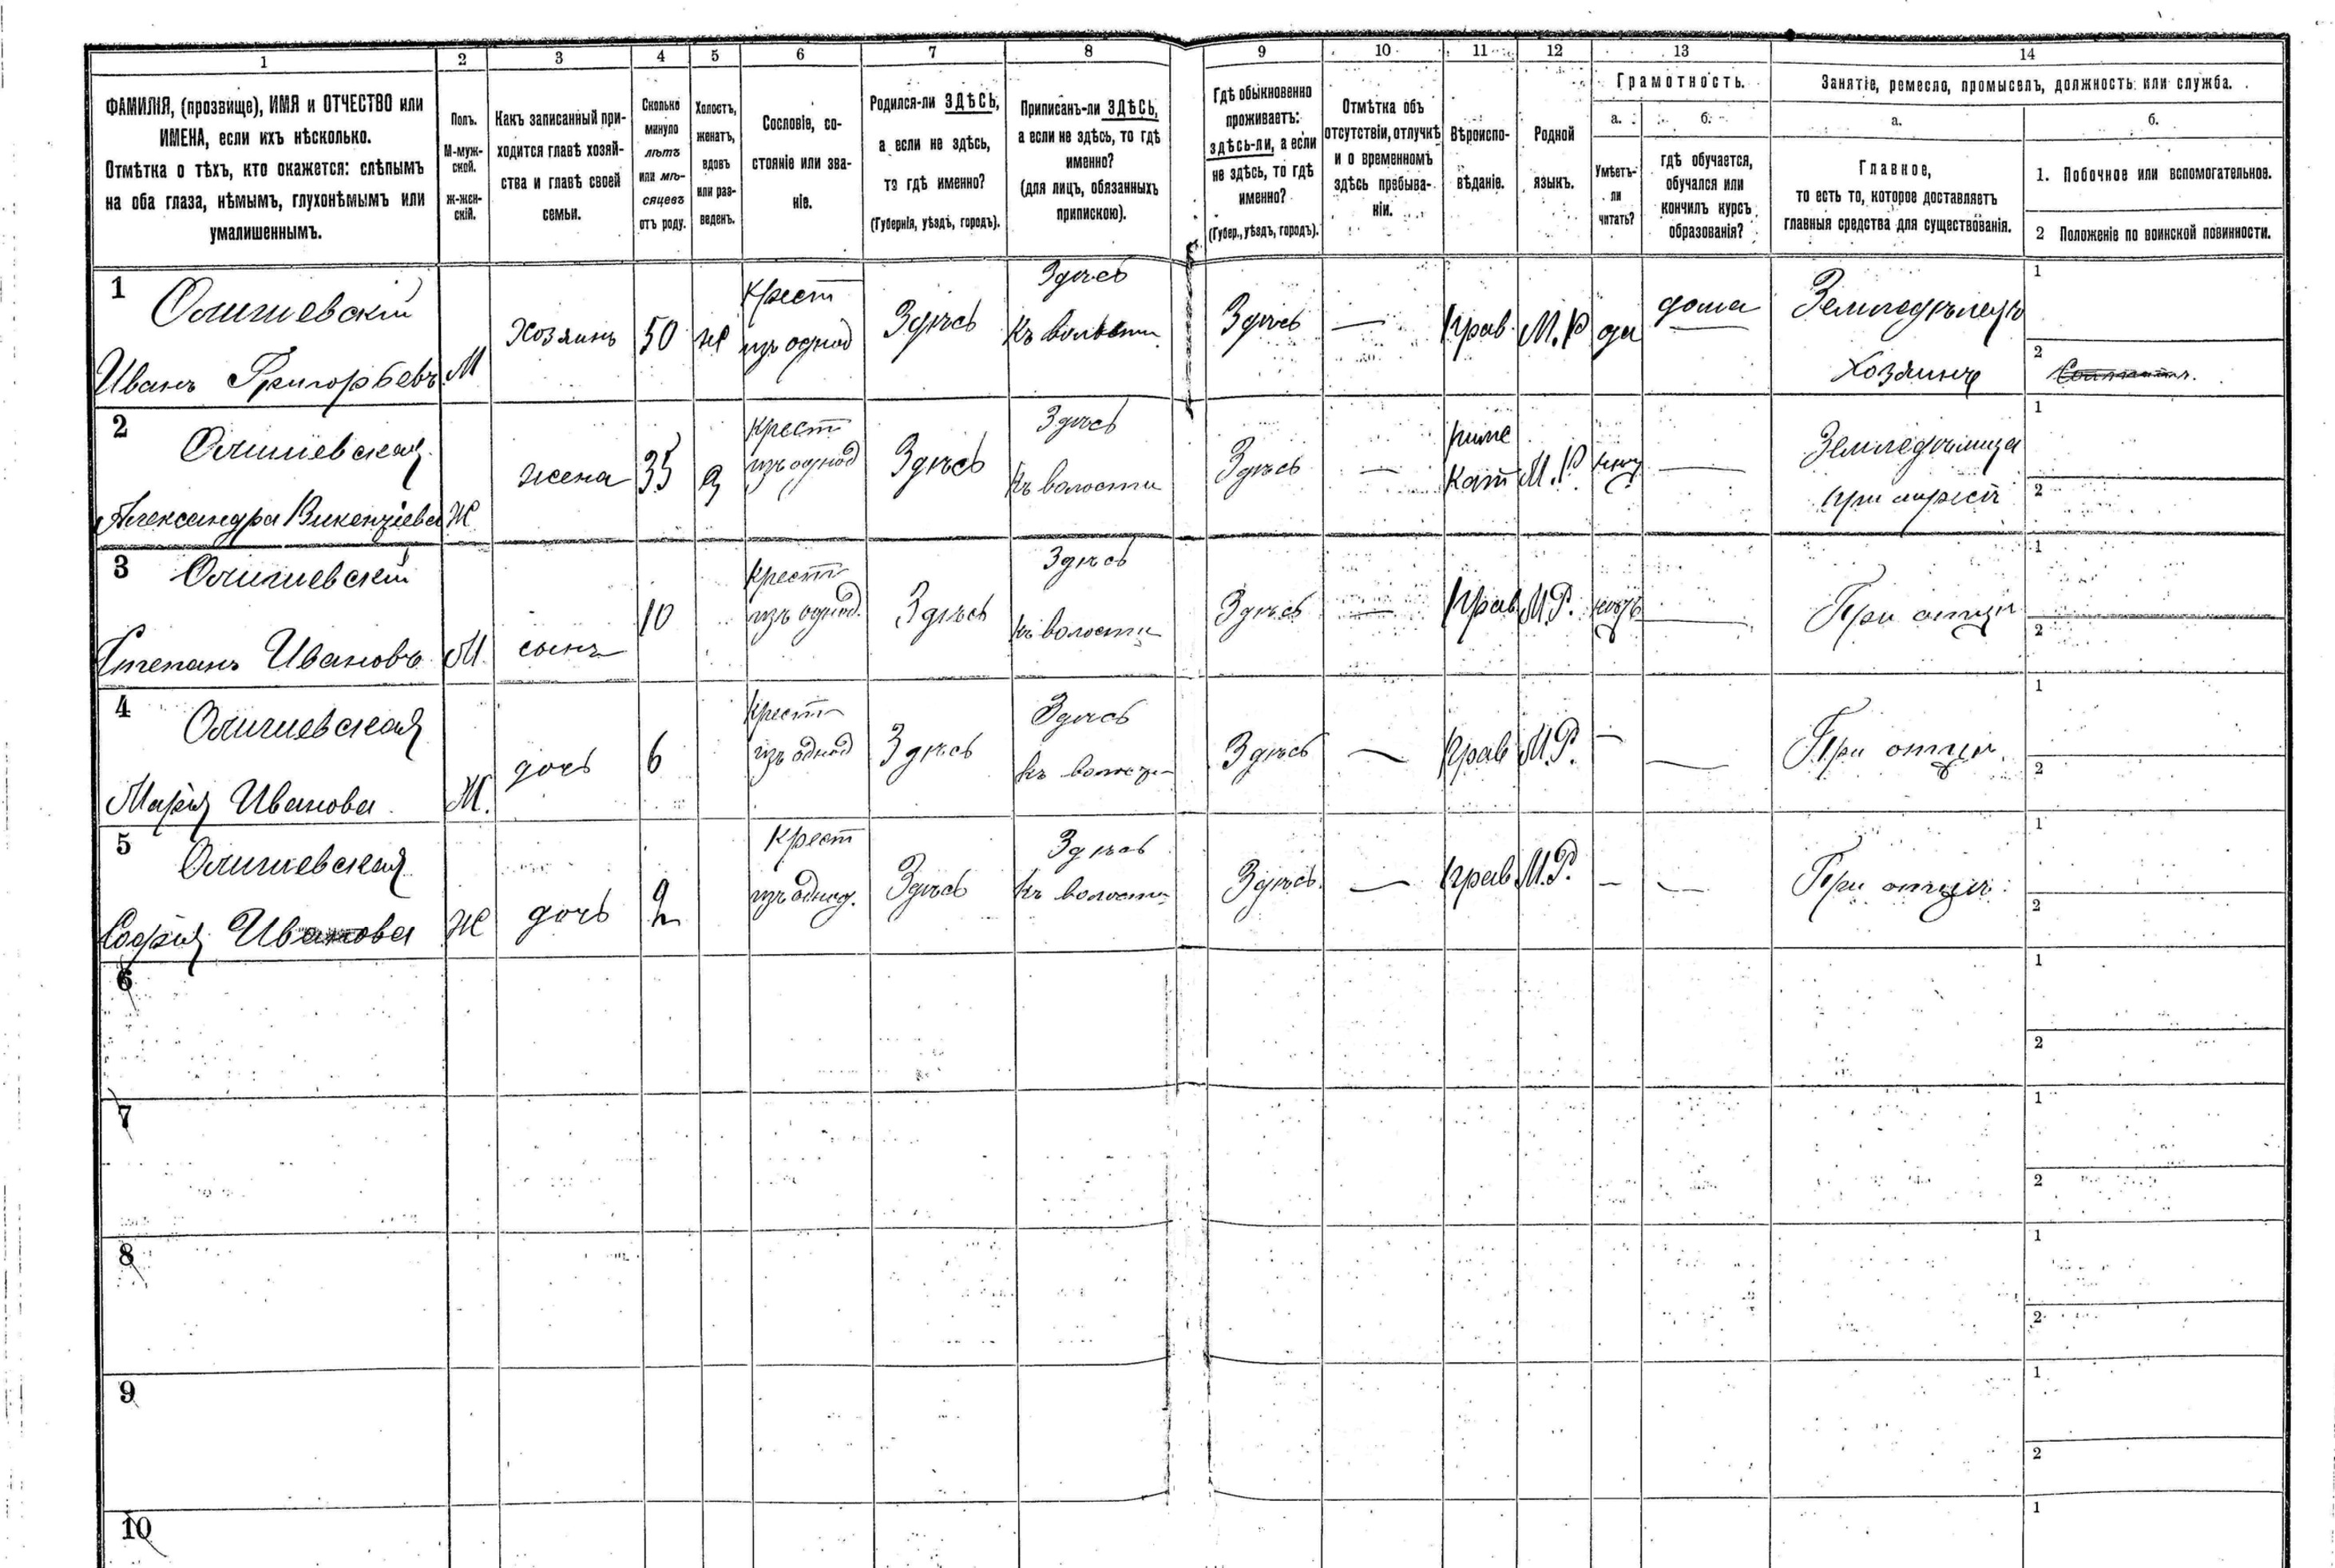 1 2 3 4 5 6 7 8 9 10 11 12 13 14
ФАМИЛІЯ, (прозвище), ИМЯ и ОТЧЕСТВО или
ИМЕНА, если ихъ нѣсколько.
Отмѣтка о тѣхъ, кто окажется: слѣпымъ
на оба глаза, нѣмымъ, глухонѣмымъ или
умалишеннымъ.
Полъ.
М-муж-
ской.
ж-жен-
скій.
Какъ записанный при-
ходится главѣ хозяй-
ства и главѣ своей
семьи.
Сколько
минуло
лѣтъ
или мѣ-
сяцевъ
отъ роду.
Холостъ,
женатъ,
вдовъ
или раз-
веденъ.
Сословіе, со-
стояніе или зва-
ніе.
Родился-ли ЗДѢСЬ,
а если не здѣсь,
то гдѣ именно?
(Губернія, уѣздъ, городъ).
Приписанъ-ли ЗДѢСЬ,
а если не здѣсь, то гдѣ
именно?
(для лицъ, обязанныхъ
припискою).
Гдѣ обыкновенно
проживаетъ:
здѣсь-ли, а если
не здѣсь, то гдѣ
именно?
(Губер., уѣздъ, городъ).
Отмѣтка объ
отсутствіи, отлучкѣ
и о временномъ
здѣсь пребыва-
ніи.
Вѣроиспо-
вѣданіе.
Родной
языкъ.
Грамотность.
а.
Умѣетъ-
ли
читать?
б.
гдѣ обучается,
обучался или
кончилъ курсъ
образованія?
Занятіе, ремесло, промыселъ, должность или служба.
а.
Главное,
то есть то, которое доставляетъ
главныя средства для существованія.
б.
1. Побочное или вспомогательное.
2 Положеніе по воинской повинности.
1
Иванъ Григорьевъ
М
Хозяинъ
50
ж
Крест
изъ однод
Здѣсь
Здѣсь
къ волости
Здѣсь
—
Прав
М.Р
да
дома
Земледѣлецъ
Хозяинъ
1
2
2
Александра Викентіева
Ж
жена
35
Крест
изъ однод
Здѣсь
Здѣсь
къ волости
Здѣсь
—
риме
Кат
М.Р
—
1
2
3
Степанъ Ивановъ
М
сынъ
10
Крест
изъ однод.
Здѣсь
Здѣсь
къ волости
Здѣсь
—
Прав
М.Р.
—
При отцѣ
1
2
4
Марія Иванова
Ж.
дочь
6
Крест
изъ однод
Здѣсь
Здѣсь
къ волости
Здѣсь
—
Прав
М.Р.
—
—
При отцѣ
1
2
5
Софія Иванова
Ж
дочь
2
Крест
изъ однод.
Здѣсь
Здѣсь
къ волости
Здѣсь
—
Прав
М.Р.
—
—
При отцѣ
1
2
6
1
2
7
1
2
8
1
2
9
1
2
10
1